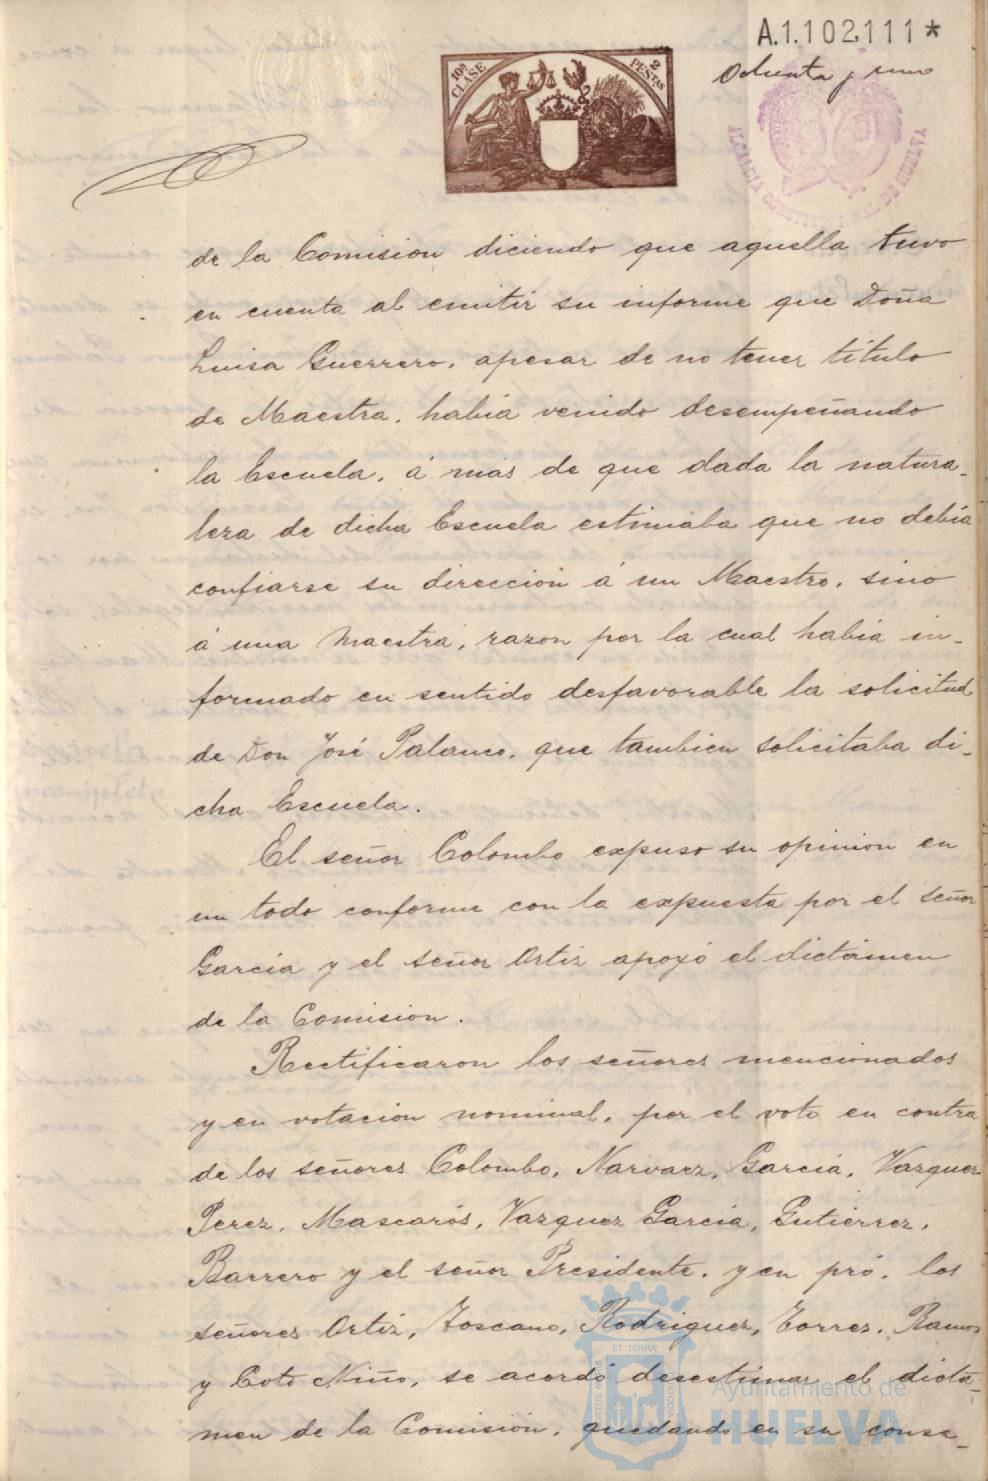 A.1.102,111*
Ochenta y uno
10ª CLASE
2 PESTAS
ALCALDIA CONSTITUCIONAL DE HUELVA
de la Comision diciendo que aquella tuvo
en cuenta al emitir su informe que Doña
Luisa Guerrero, apesar de no tener titulo
de Maestra, habia venido desempeñando
la Escuela, á mas de que dada la natura-
leza de dicha Escuela estimaba que no debia
confiarse su direccion á un Maestro, sino
á una Maestra, razon por la cual habia in-
formado en sentido desfavorable la solicitud
de Don José Palanco, que tambien solicitaba di-
cha Escuela.
El señor Colombo expuso su opinion en
un todo conforme con la expuesta por el señor
Garcia y el señor Ortiz apoyó el dictámen
de la Comision.
Rectificaron los señores mencionados
y en votacion nominal, por el voto en contra
de los señores Colombo, Narvaez, Garcia, Vazquez
Perez, Mascarós, Vazquez Garcia, Gutierrez,
Barrero y el señor Presidente, y en pró, los
señores Ortiz, Toscano, Rodriguez, Torres, Ramos
y Coto Niño, se acordó desestimar el dictá-
men de la Comision, quedando en su conse-
ET TERRA
Ayuntamiento de
HUELVA